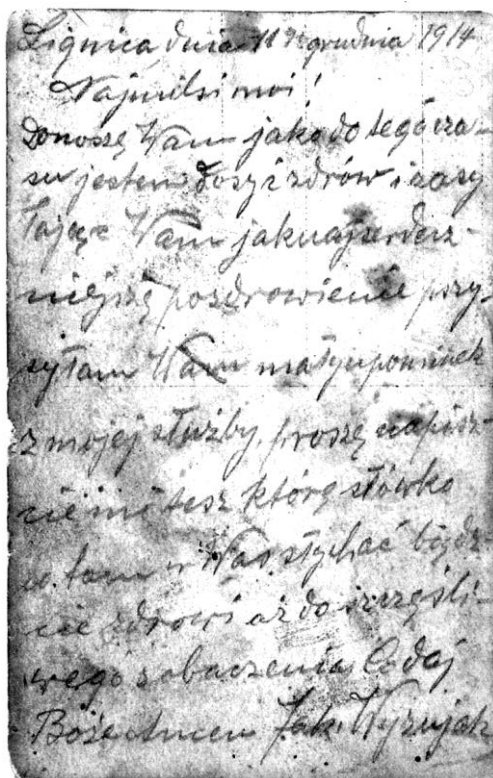 Lignica dnia 11 grudnia 1914
Najmilsi moi!
Donoszę Wam jako do tego cza-
su jestem dosyć zdrów i zasy
łając Wam jaknajserdecz-
niejszę pozdrowienie przy-
syłam Wam mały upominek
z mojej służby, proszę napisz-
cie mi tesz którę słówko
tam u Was słychać bądz-
cie zdrowi aż do szczęśli-
wego zobaczenia Co daj
Boże Amen Jak.